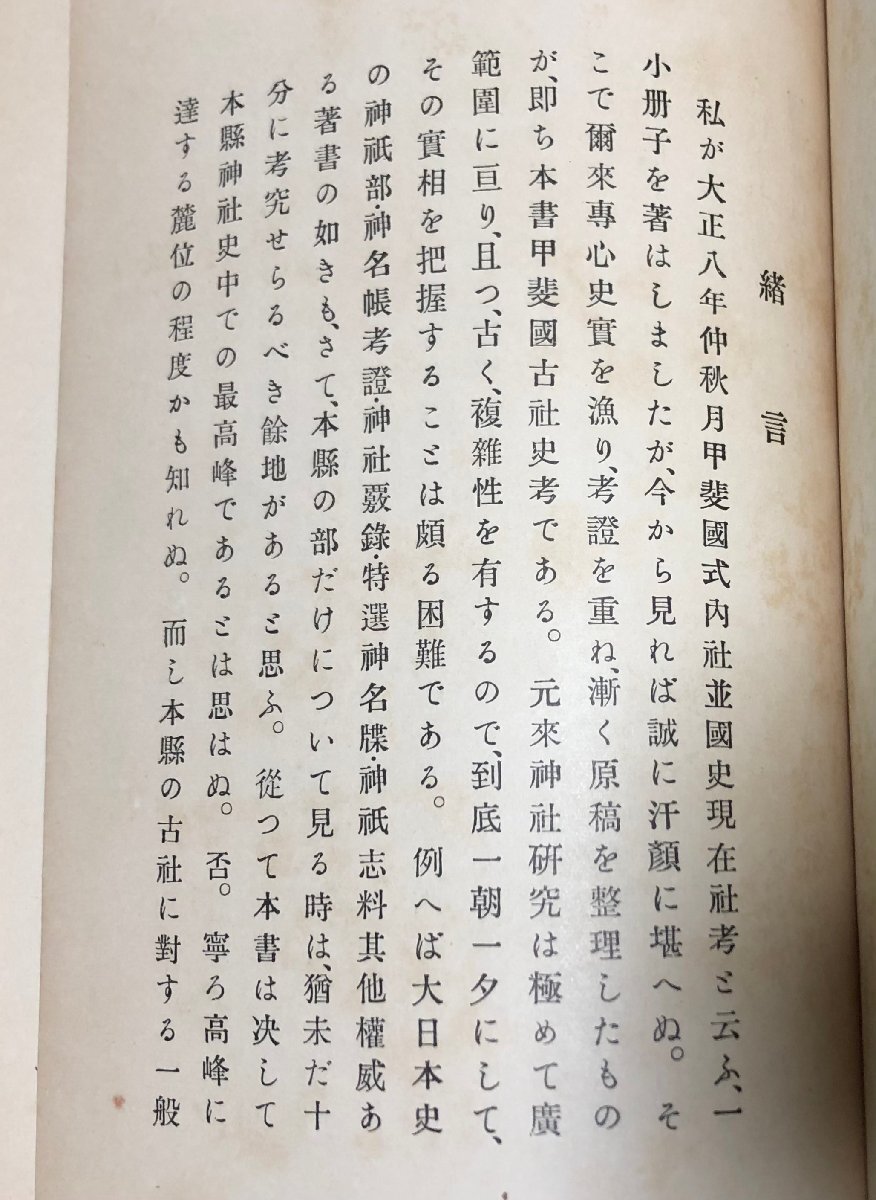 緒言
私が大正八年仲秋月甲斐國式內社並國史現在社考と云ふ、一
小册子を著はしましたが、今から見れば誠に汗顏に堪へぬ。そ
こで爾來專心史實を漁り、考證を重ね、漸く原稿を整理したもの
が、卽ち本書甲斐國古社史考である。元來神社硏究は極めて廣
範圍に亘り、且つ、古く、複雜性を有するので、到底一朝一夕にして、
その實相を把握することは頗る困難である。例へば大日本史
の神祇部・神名帳考證・神社覈錄・特選神名牒・神祇志料其他權威あ
る著書の如きも、さて、本縣の部だけについて見る時は、猶未だ十
分に考究せらるべき餘地があると思ふ。從つて本書は決して
本縣神社史中での最高峰であるとは思はぬ。否。寧ろ高峰に
達する麓位の程度かも知れぬ。而し本縣の古社に對する一般